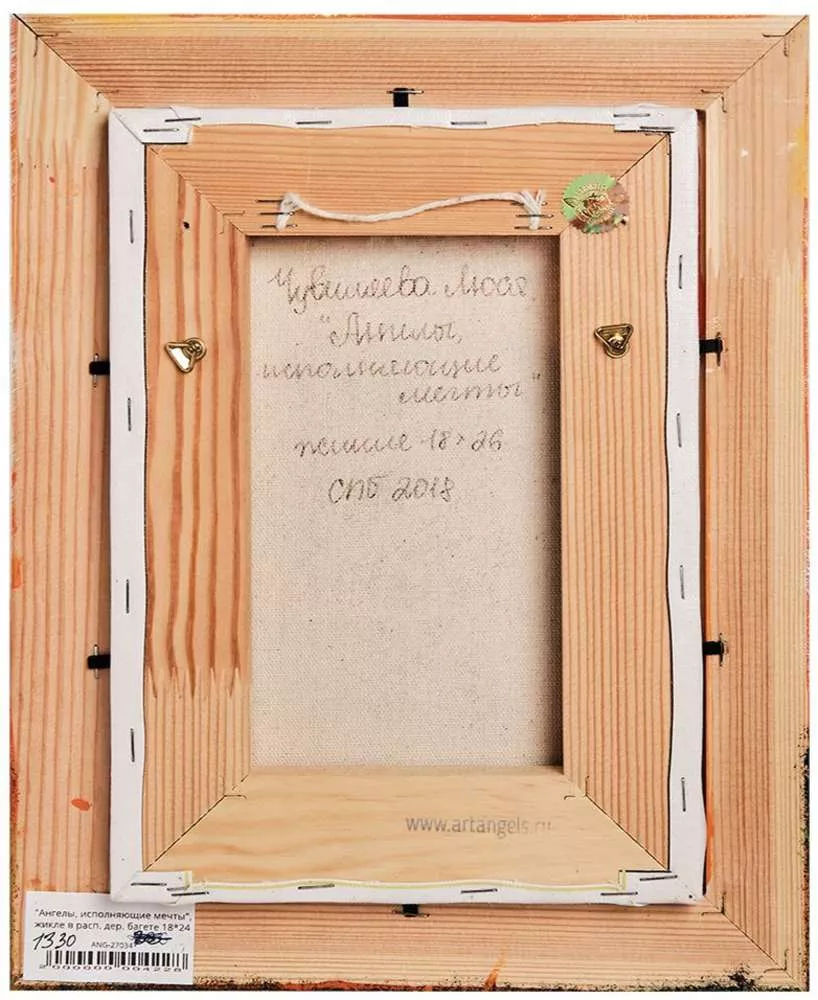 Чувиляева Люся.
"Ангелы,
исполняющие
мечты"
жикле 18×26
СПб 2018
www.artangels.ru
"Ангелы, исполняющие мечты",
жикле в расп. дер. багете 18*24
1330 ANG-27034
2 000000 004228